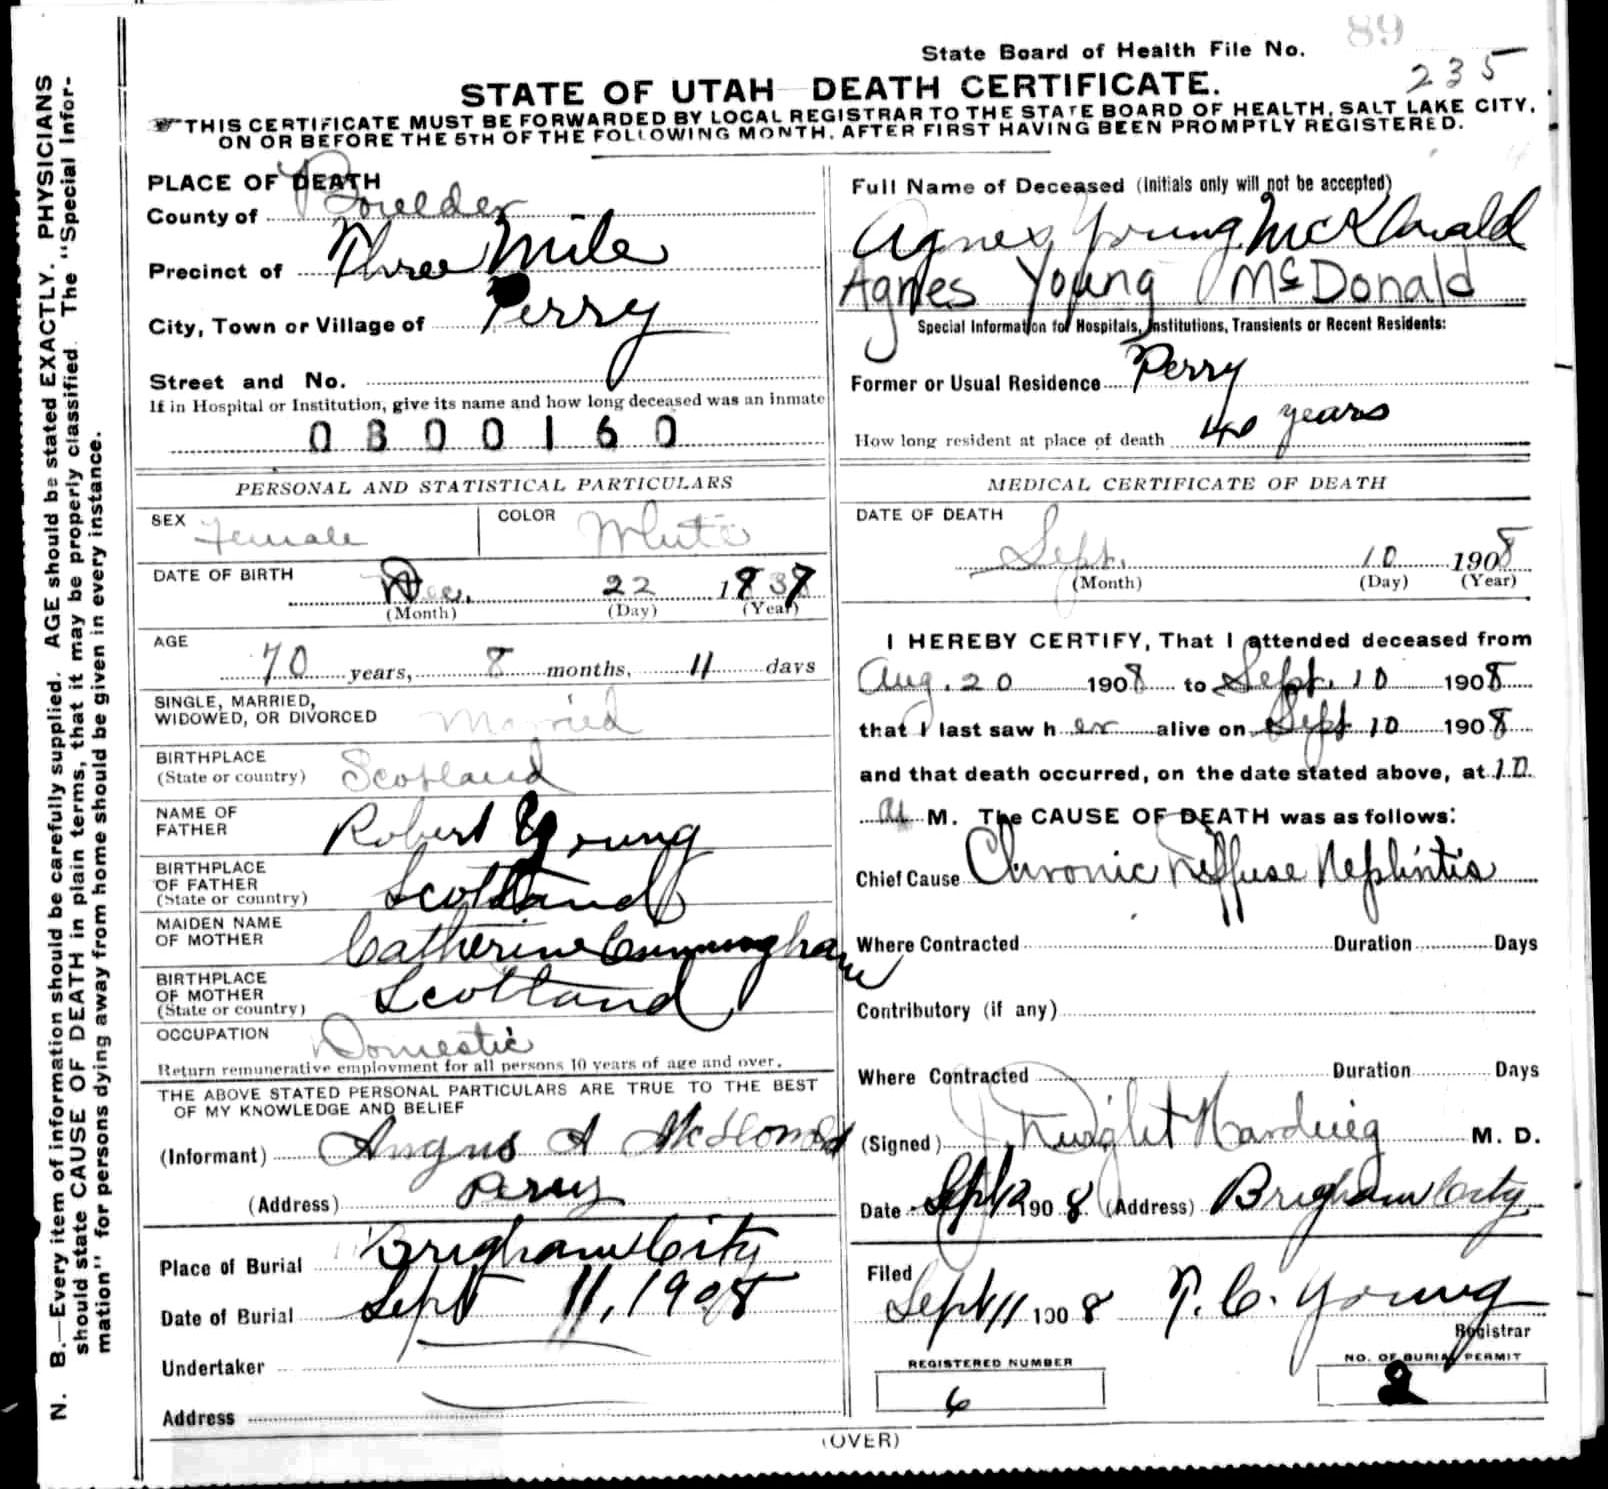 89
State Board of Health File No.
235
STATE OF UTAH DEATH CERTIFICATE.
THIS CERTIFICATE MUST BE FORWARDED BY LOCAL REGISTRAR TO THE STATE BOARD OF HEALTH, SALT LAKE CITY,
ON OR BEFORE THE 5TH OF THE FOLLOWING MONTH, AFTER FIRST HAVING BEEN PROMPTLY REGISTERED.
N. B.—Every item of information should be carefully supplied. AGE should be stated EXACTLY. PHYSICIANS
should state CAUSE OF DEATH in plain terms, that it may be properly classified. The "Special Infor-
mation" for persons dying away from home should be given in every instance.
PLACE OF DEATH
County of Boulder
Precinct of Three Mile
City, Town or Village of Perry
Street and No.
If in Hospital or Institution, give its name and how long deceased was an inmate
0300160
Full Name of Deceased (Initials only will not be accepted)
Agnes Young McDonald
Agnes Young McDonald
Special Information for Hospitals, Institutions, Transients or Recent Residents:
Former or Usual Residence Perry
How long resident at place of death 40 years
PERSONAL AND STATISTICAL PARTICULARS
SEX Female COLOR White
DATE OF BIRTH Dec. 22 1837
(Month) (Day) (Year)
AGE 70 years, 8 months, 11 days
SINGLE, MARRIED,
WIDOWED, OR DIVORCED Married
BIRTHPLACE
(State or country) Scotland
NAME OF
FATHER Robert Young
BIRTHPLACE
OF FATHER
(State or country) Scotland
MAIDEN NAME
OF MOTHER Catherine Cunningham
BIRTHPLACE
OF MOTHER
(State or country) Scotland
OCCUPATION Domestic
Return remunerative employment for all persons 10 years of age and over.
THE ABOVE STATED PERSONAL PARTICULARS ARE TRUE TO THE BEST
OF MY KNOWLEDGE AND BELIEF
(Informant) Angus A McDonald
(Address) Perry
Place of Burial Brigham City
Date of Burial Sept 11, 1908
Undertaker
Address
MEDICAL CERTIFICATE OF DEATH
DATE OF DEATH
Sept. 10 1908
(Month) (Day) (Year)
I HEREBY CERTIFY, That I attended deceased from
Aug. 20 1908 to Sept. 10 1908
that I last saw h er alive on Sept 10 1908
and that death occurred, on the date stated above, at 10
a M. The CAUSE OF DEATH was as follows:
Chief Cause Chronic Diffuse Nephritis
Where Contracted Duration Days
Contributory (if any)
Where Contracted Duration Days
(Signed) J. Dwight Harding M. D.
Date Sept 1908 (Address) Brigham City
Filed
Sept 11 1908 T. C. Young
Registrar
REGISTERED NUMBER
6
NO. OF BURIAL PERMIT
(OVER)